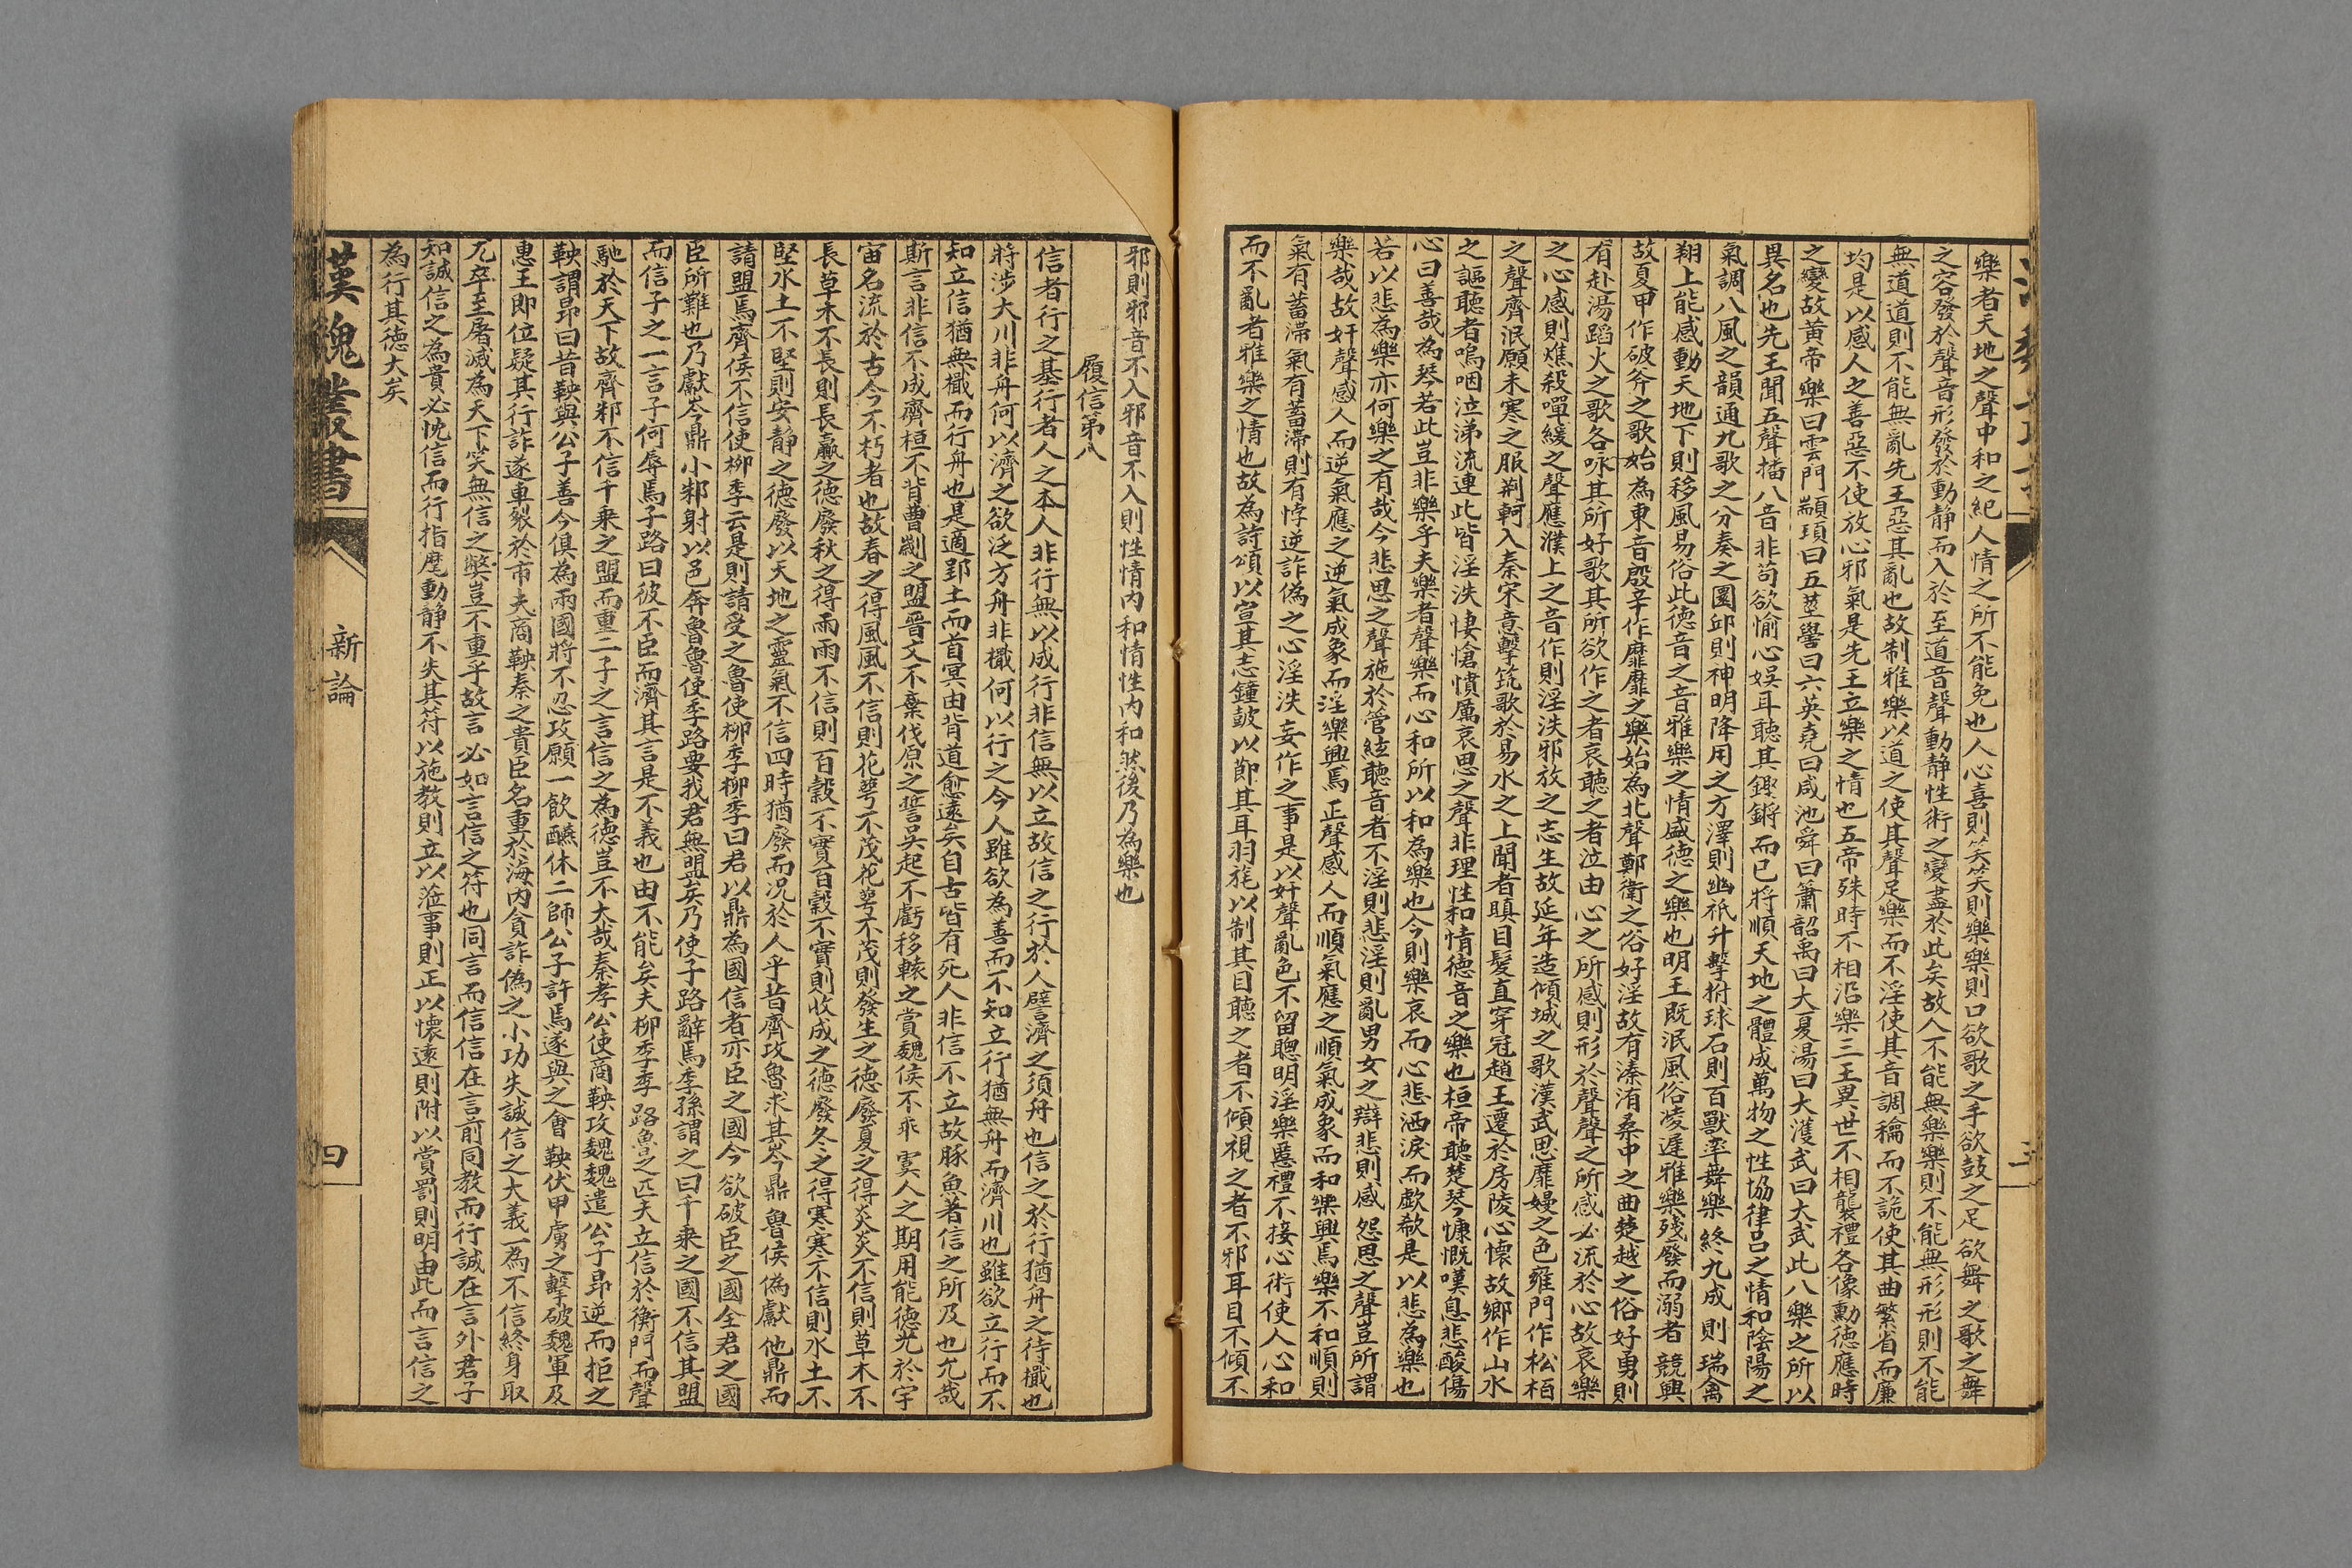 樂者天地之聲中和之紀人情之所不能免也人心喜則笑笑則樂樂則口欲歌之手欲鼓之足欲舞之歌之舞
之容發於聲音形發於動靜而入於至道音聲動靜性術之變盡於此矣故人不能無樂樂則不能無形形則不能
無道道則不能無亂先王惡其亂也故制雅樂以道之使其聲足樂而不淫使其音調稐而不詭使其曲繁省而廉
均是以感人之善惡不使放心邪氣是先王立樂之情也五帝殊時不相沿樂三王異世不相襲禮各像勳德應時
之變故黃帝樂曰雲門顓頊曰五莖嚳曰六英堯曰咸池舜曰簫韶禹曰大夏湯曰大濩武曰大武此八樂之所以
異名也先王聞五聲播八音非苟欲愉心娛耳聽其鏗鏘而已將順天地之體成萬物之性協律呂之情和陰陽之
氣調八風之韻通九歌之分奏之圜邱則神明降用之方澤則幽祇升擊拊球石則百獸率舞樂終九成則瑞禽
翔上能感動天地下則移風易俗此德音之音雅樂之情盛德之樂也明王既泯風俗凌遲雅樂殘廢而溺者競興
故夏甲作破斧之歌始為東音殷辛作靡靡之樂始為北聲鄭衛之俗好淫故有溱洧桑中之曲楚越之俗好勇則
有赴湯蹈火之歌各咏其所好歌其所欲作之者哀聽之者泣由心之所感則形於聲聲之所感必流於心故哀樂
之心感則燋殺嘽緩之聲應濮上之音作則淫泆邪放之志生故延年造傾城之歌漢武思靡嫚之色雍門作松栢
之聲齊泯願未寒之服荊軻入秦宋意擊筑歌於易水之上聞者瞋目髮直穿冠趙王遷於房陵心懷故鄉作山水
之謳聽者嗚咽泣涕流連此皆淫泆悽愴憤厲哀思之聲非理性和情德音之樂也桓帝聽楚琴慷慨嘆息悲酸傷
心曰善哉為琴若此豈非樂乎夫樂者聲樂而心和所以和為樂也今則樂哀而心悲洒淚而歔欷是以悲為樂也
若以悲為樂亦何樂之有哉今悲思之聲施於管絃聽音者不淫則悲淫則亂男女之辯悲則感怨思之聲豈所謂
樂哉故奸聲感人而逆氣應之逆氣成象而淫樂興焉正聲感人而順氣應之順氣成象而和樂興焉樂不和順則
氣有蓄滯氣有蓄滯則有悖逆詐偽之心淫泆妄作之事是以奸聲亂色不留聰明淫樂慝禮不接心術使人心和
而不亂者雅樂之情也故為詩頌以宣其志鐘鼓以節其耳羽旄以制其目聽之者不傾視之者不邪耳目不傾不
三
邪則邪音不入邪音不入則性情內和情性內和然後乃為樂也
履信第八
信者行之基行者人之本人非行無以成行非信無以立故信之行於人譬濟之須舟也信之於行猶舟之待檝也
將涉大川非舟何以濟之欲泛方舟非檝何以行之今人雖欲為善而不知立行猶無舟而濟川也雖欲立行而不
知立信猶無檝而行舟也是適郢土而首冥由背道愈遠矣自古皆有死人非信不立故豚魚著信之所及也允哉
斯言非信不成齊桓不背曹劌之盟晋文不棄伐原之誓吳起不虧移轅之賞魏侯不乖虞人之期用能德光於宇
宙名流於古今不朽者也故春之得風風不信則花萼不茂花萼不茂則發生之德廢夏之得炎炎不信則草木不
長草木不長則長贏之德廢秋之得雨雨不信則百穀不實百穀不實則收成之德廢冬之得寒寒不信則水土不
堅水土不堅則安靜之德廢以天地之靈氣不信四時猶廢而況於人乎昔齊攻魯求其岑鼎魯侯偽獻他鼎而
請盟焉齊侯不信使柳季云是則請受之魯使柳季柳季曰君以鼎為國信者亦臣之國今欲破臣之國全君之國
臣所難也乃獻岑鼎小邾射以邑奔魯魯使季路要我君無盟矣乃使子路辭焉季孫謂之曰千乘之國不信其盟
而信子之一言子何辱焉子路曰彼不臣而濟其言是不義也由不能矣夫柳季季路魯之匹夫立信於衡門而聲
馳於天下故齊邾不信千乘之盟而重二子之言信之為德豈不大哉秦孝公使商鞅攻魏魏遣公子昂逆而拒之
鞅謂昂曰昔鞅與公子善今俱為兩國將不忍攻願一飲醼休二師公子許焉遂與之會鞅伏甲虜之擊破魏軍及
惠王即位疑其行詐遂車裂於市夫商鞅秦之貴臣名重於海內貪詐偽之小功失誠信之大義一為不信終身取
尤卒至屠滅為天下笑無信之弊豈不重乎故言必如言信之符也同言而信信在言前同教而行誠在言外君子
知誠信之為貴必忱信而行指麾動靜不失其符以施教則立以蒞事則正以懷遠則附以賞罰則明由此而言信之
為行其德大矣
漢魏叢書
新論
四